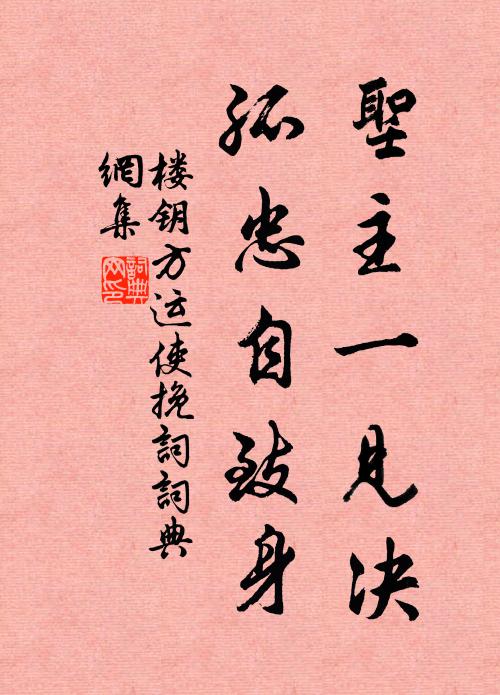 聖主一見決
孤忠自致身
楼钥方运使挽詞詞典
網集
詞典網印